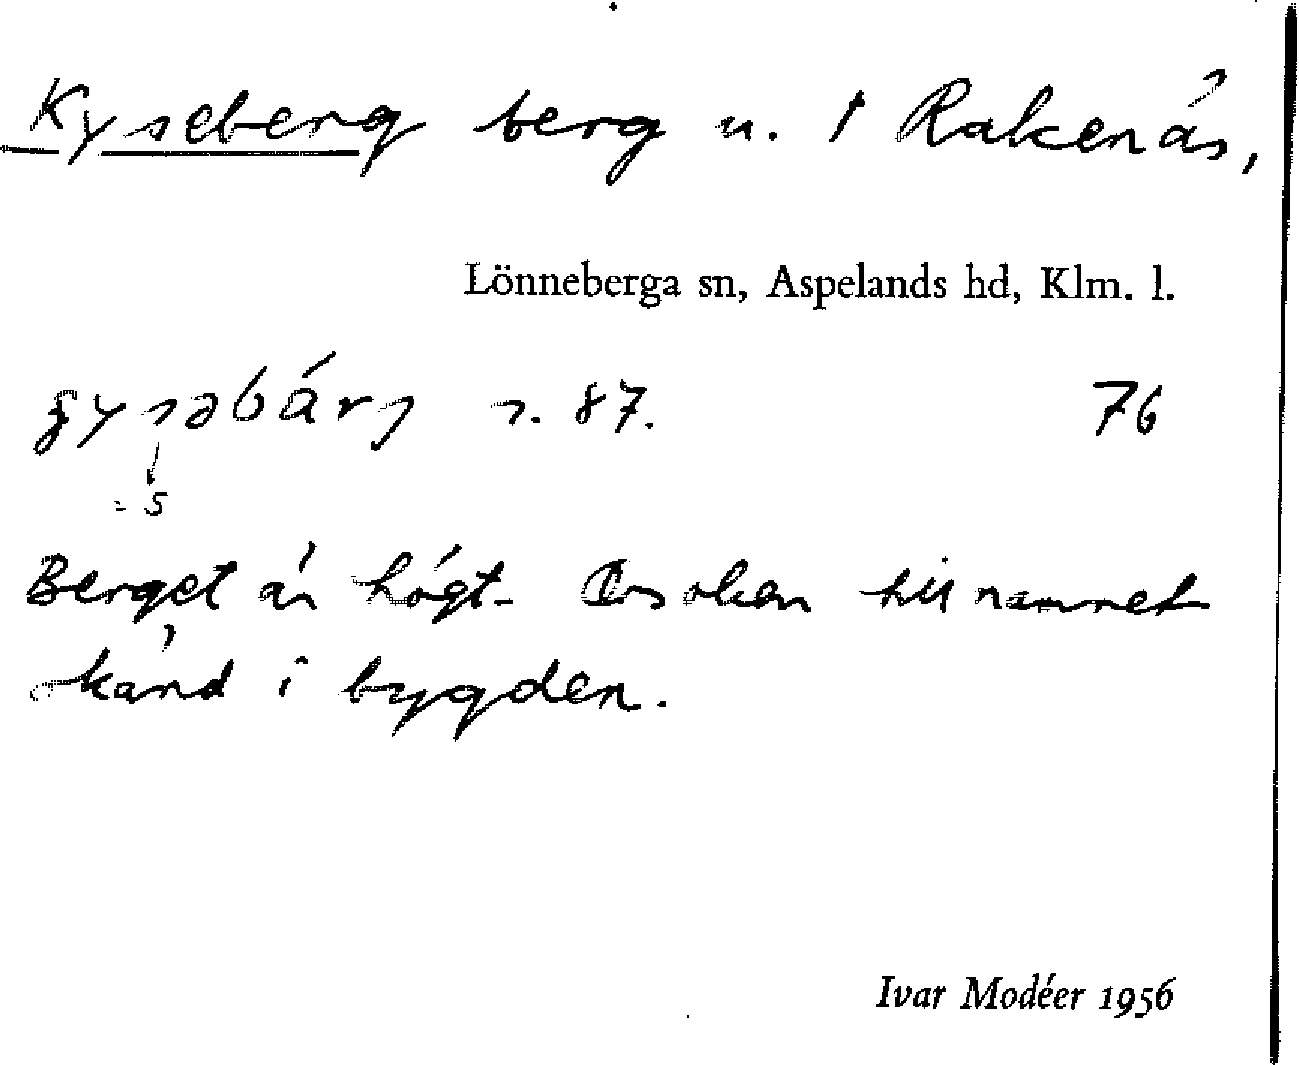 Kyseberg berg u. t Rakenäs,
Lönneberga sn, Aspelands hd, Klm. l.
s. 87. 76
= s
Berget är högt. Orsaken till namnet
okänd i bygden.
Ivar Modéer 1956